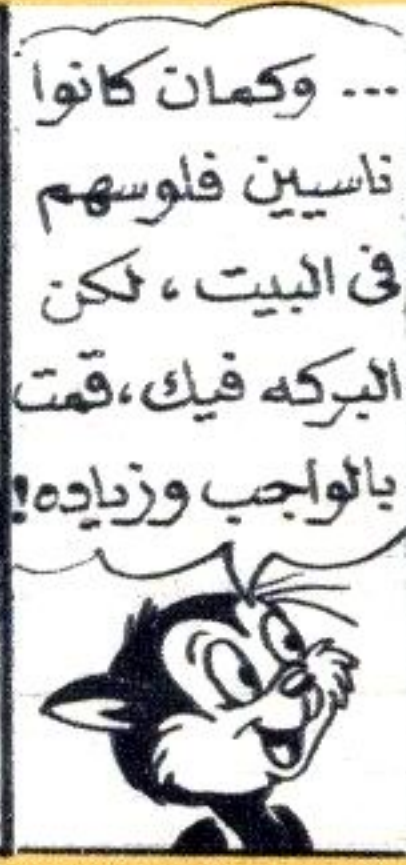 ... وكمان كانوا
ناسيين فلوسهم
فى البيت ، لكن
البركه فيك ، قمت
بالواجب وزياده !